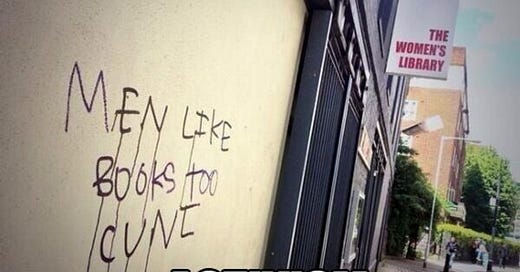 THE
WOMEN'S
LIBRARY
MEN LIKE
BOOKS TOO
CUNT